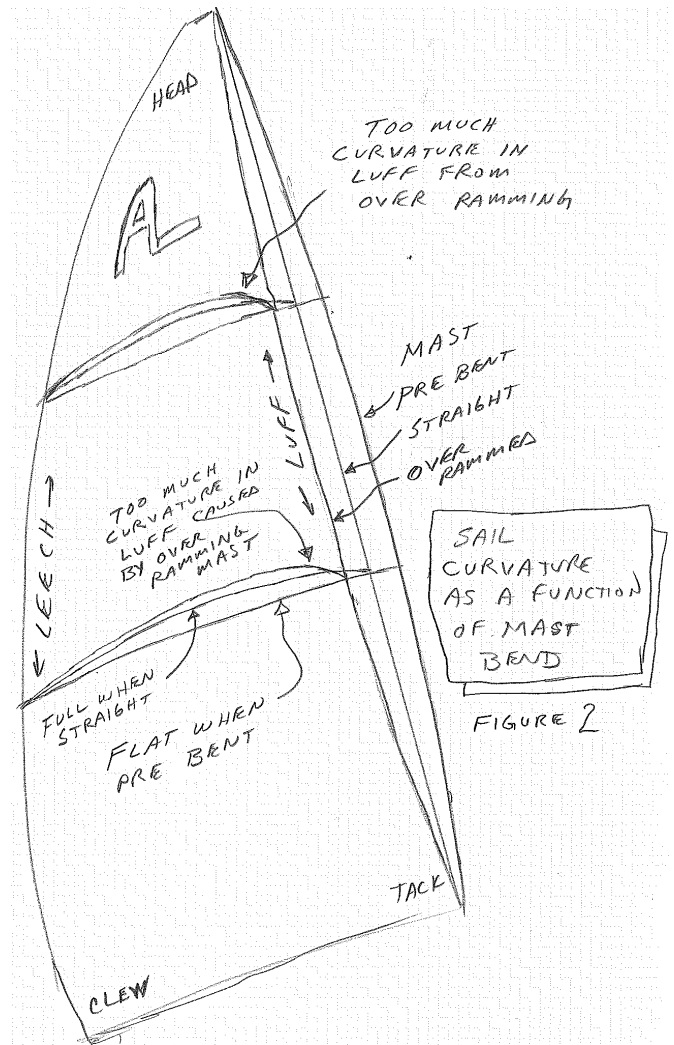 HEAD
AL
TOO MUCH
CURVATURE IN
LUFF FROM
OVER RAMMING
MAST
PRE BENT
STRAIGHT
OVER
RAMMED
← LUFF →
TOO MUCH
CURVATURE IN
LUFF CAUSED
BY OVER
RAMMING
MAST
← LEECH →
SAIL
CURVATURE
AS A FUNCTION
OF MAST
BEND
FIGURE 2
FULL WHEN
STRAIGHT
FLAT WHEN
PRE BENT
TACK
CLEW